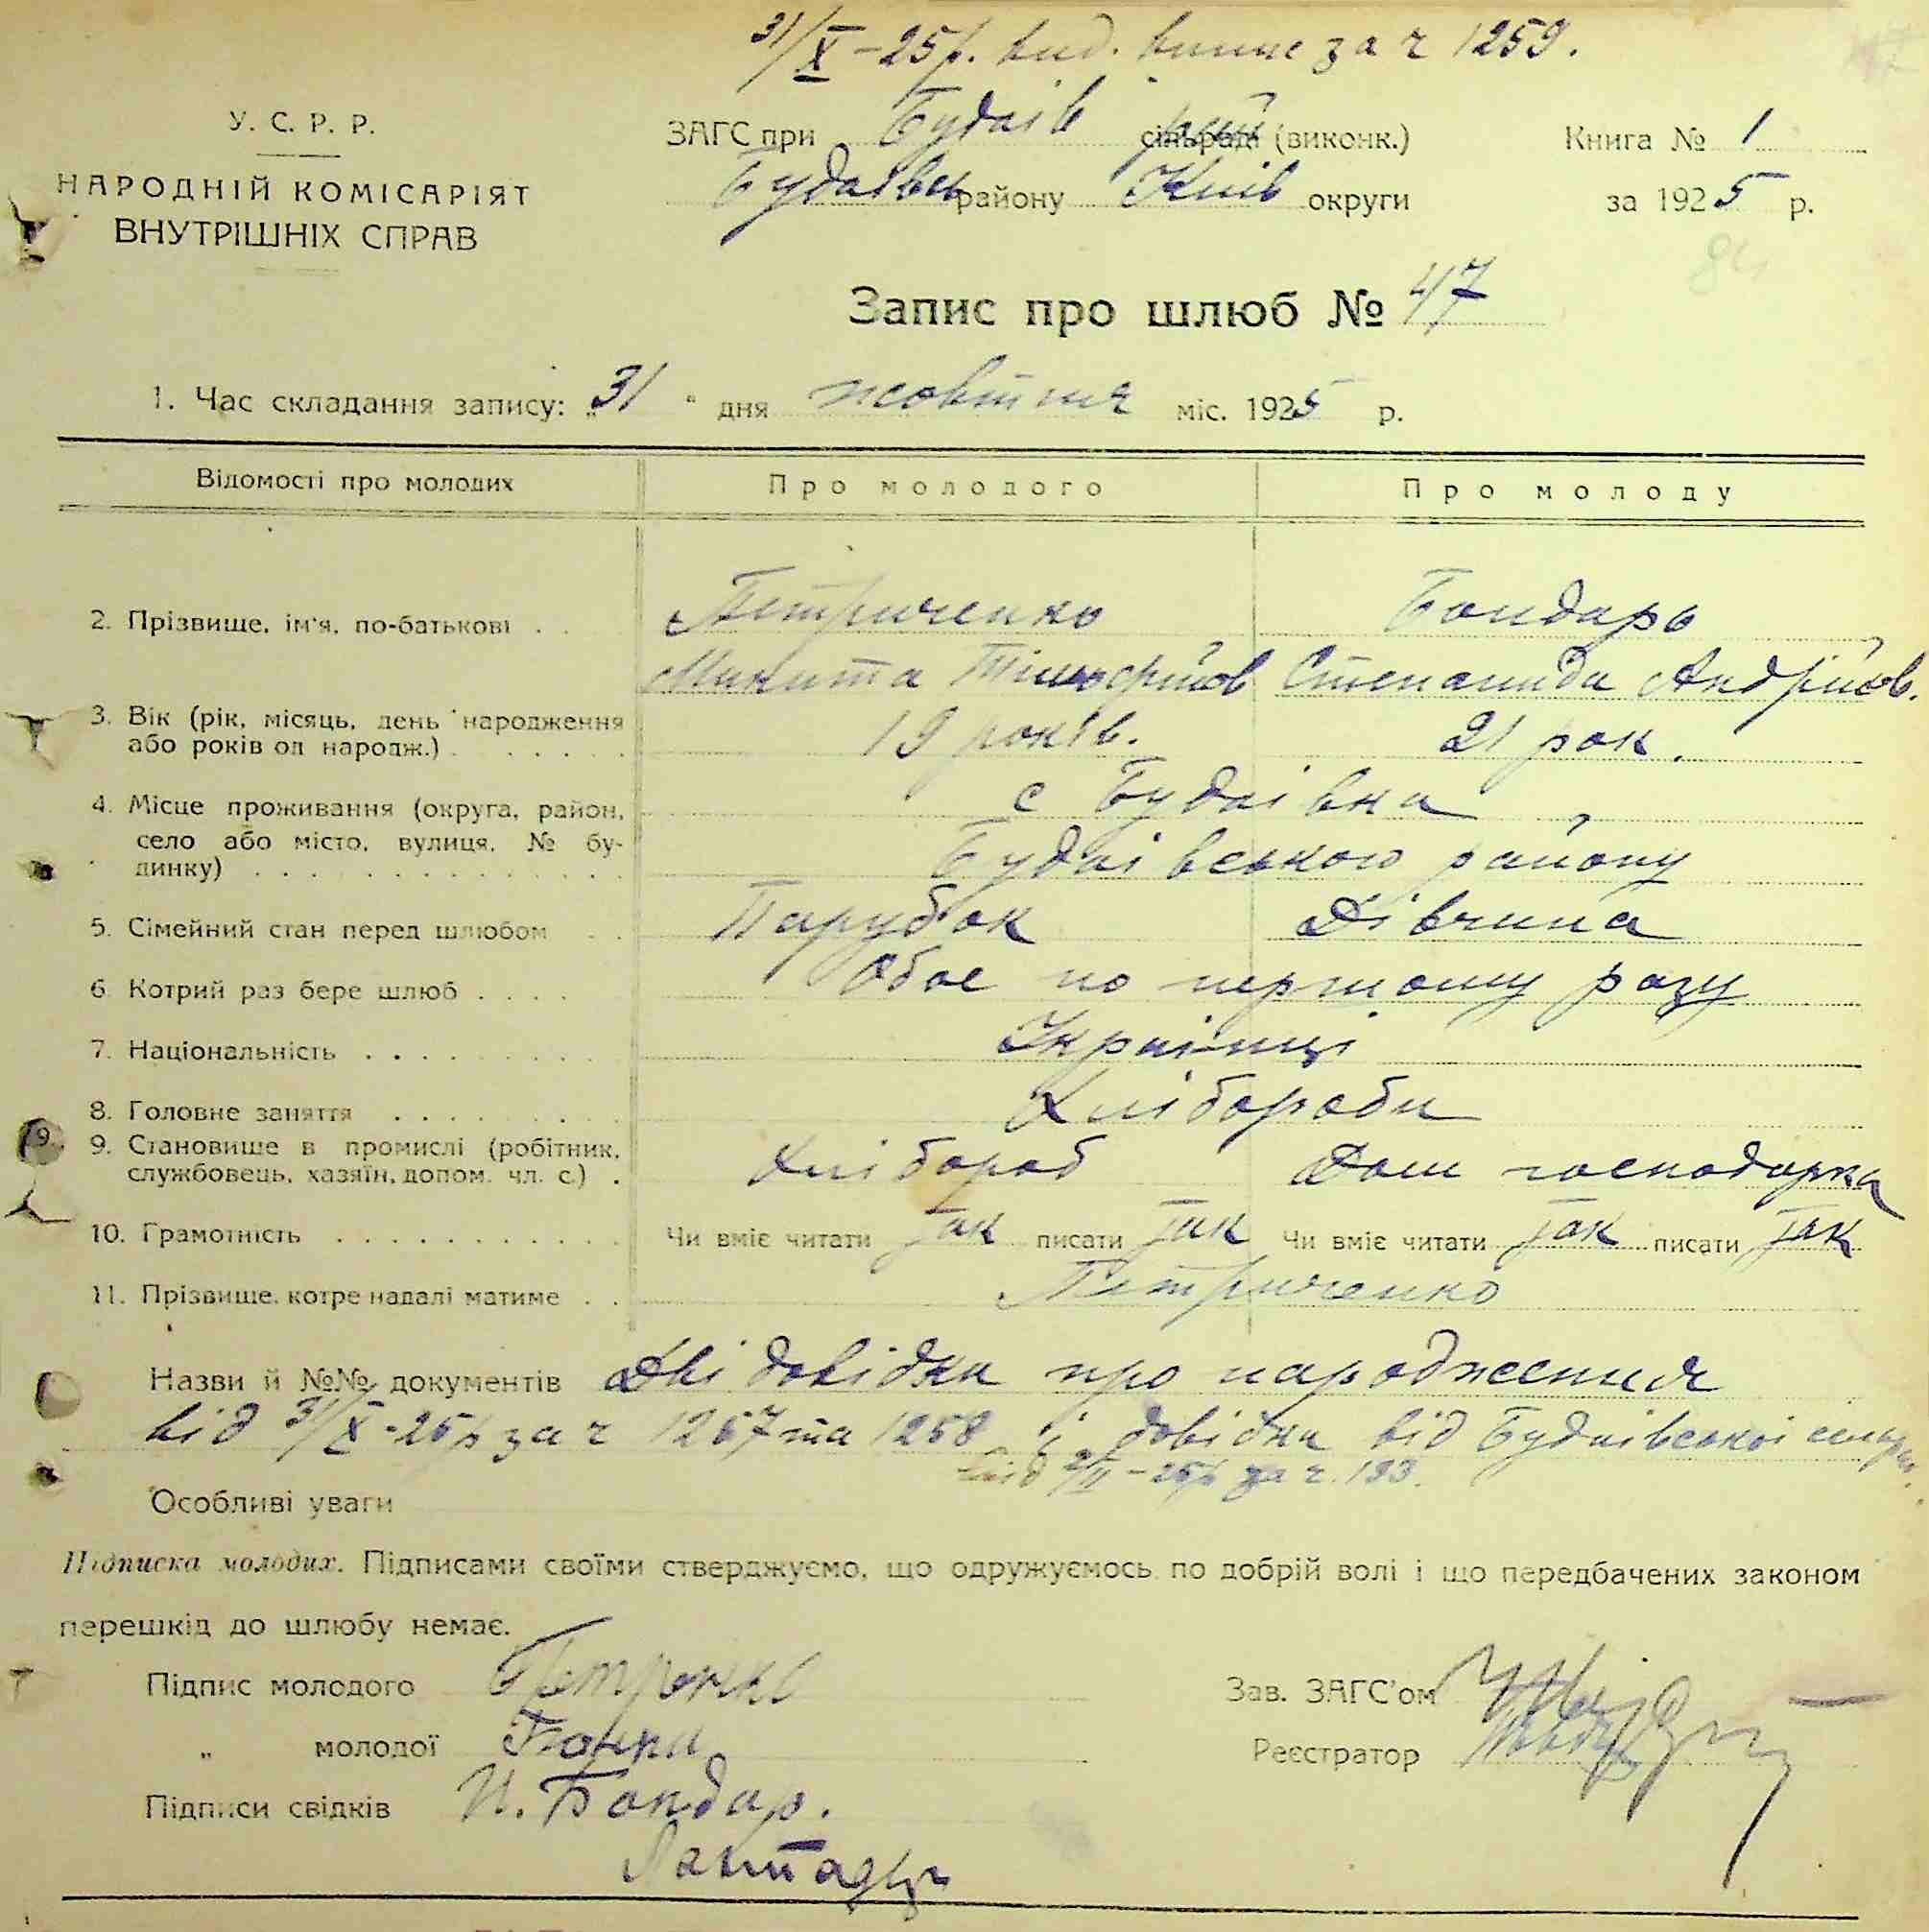 31/X – 25р. вид. випис за ч 1259.
У. С. Р. Р.
НАРОДНІЙ КОМІСАРІЯТ
ВНУТРІШНІХ СПРАВ
ЗАГС при Будаів сільраді (виконк.)
Будаївськ району Київ округи
Книга № 1
за 1925 р.
Запис про шлюб № 47
1. Час складання запису: „31“ дня жовтня міс. 1925 р.
Відомості про молодих Про молодого Про молоду
2. Прізвище, ім'я, по-батькові . . Петриченко Бондарь
Микита Тімофійов Степанида Андрійов.
3. Вік (рік, місяць, день народження
або років од народж.) . . . . . . 19 років. 21 рок.
4. Місце проживання (округа, район,
село або місто, вулиця, № бу-
динку) . . . . . . . . . . . . . .
с Будаівка
Будаівського району
5. Сімейний стан перед шлюбом . . Парубок Дівчина
6. Котрий раз бере шлюб . . . . Обое по першому разу
7. Національність . . . . . . . . Українці
8. Головне заняття . . . . . . . . Хлібороби
9. Становище в промислі (робітник,
службовець, хазяїн, допом. чл. с.) . Хлібороб Дом господарка
10. Грамотність . . . . . . . . . . . . Чи вміє читати так писати так Чи вміє читати так писати так
11. Прізвище, котре надалі матиме . . Петриченко
Назви й №№ документів Дві довідки про народження
від 31/X-25р за ч 1257 та 1258 і довідка від Будаівської сільра
від /II – 25р за ч. 193.
Особливі уваги
Підписка молодих. Підписами своїми стверджуємо, що одружуємось по добрій волі і що передбачених законом
перешкід до шлюбу немає.
Підпис молодого
„ молодої
Підписи свідків И. Бондар.
Зав. ЗАГС'ом
Реєстратор